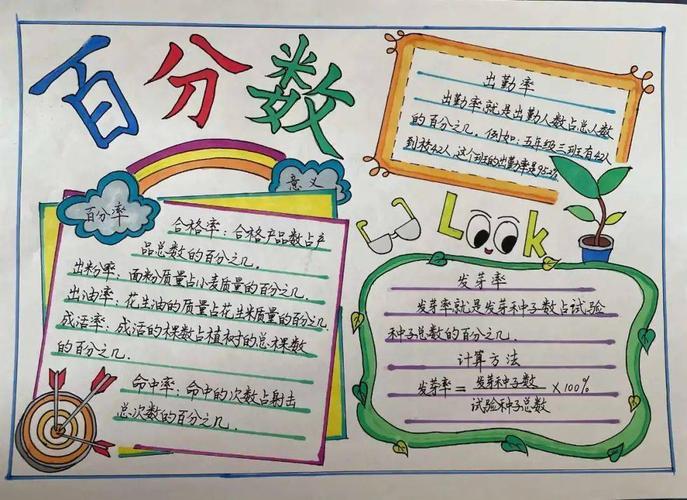 百分数
百分率
意义
合格率：合格产品数占产
品总数的百分之几.
出粉率：面粉质量占小麦质量的百分之几.
出油率：花生油的质量占花生米质量的百分之几.
成活率：成活的棵数占植树的总棵数
的百分之几.
命中率：命中的次数占射击
总次数的百分之几.
出勤率
出勤率就是出勤人数占总人数
的百分之几，例如：五年级三班有
到校62人，这个班的出勤率是
Look
发芽率
发芽率就是发芽种子数占试验
种子总数的百分之几.
计算方法
发芽率＝发芽种子数×100%
试验种子总数